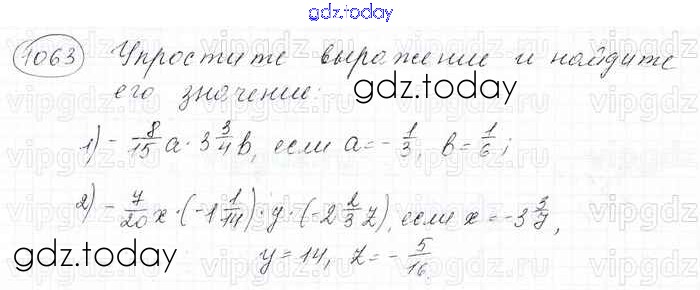 gdz.today
1063 Упростите выражение и найдите
его значение:
gdz.today
1) - 8/15 a · 3 3/4 b, если a = - 1/3, b = 1/6;
2) - 7/20 x · (-1 1/14) · y · (-2 2/3 z), если x = -3 3/7,
gdz.today
y = 14, z = - 5/16.